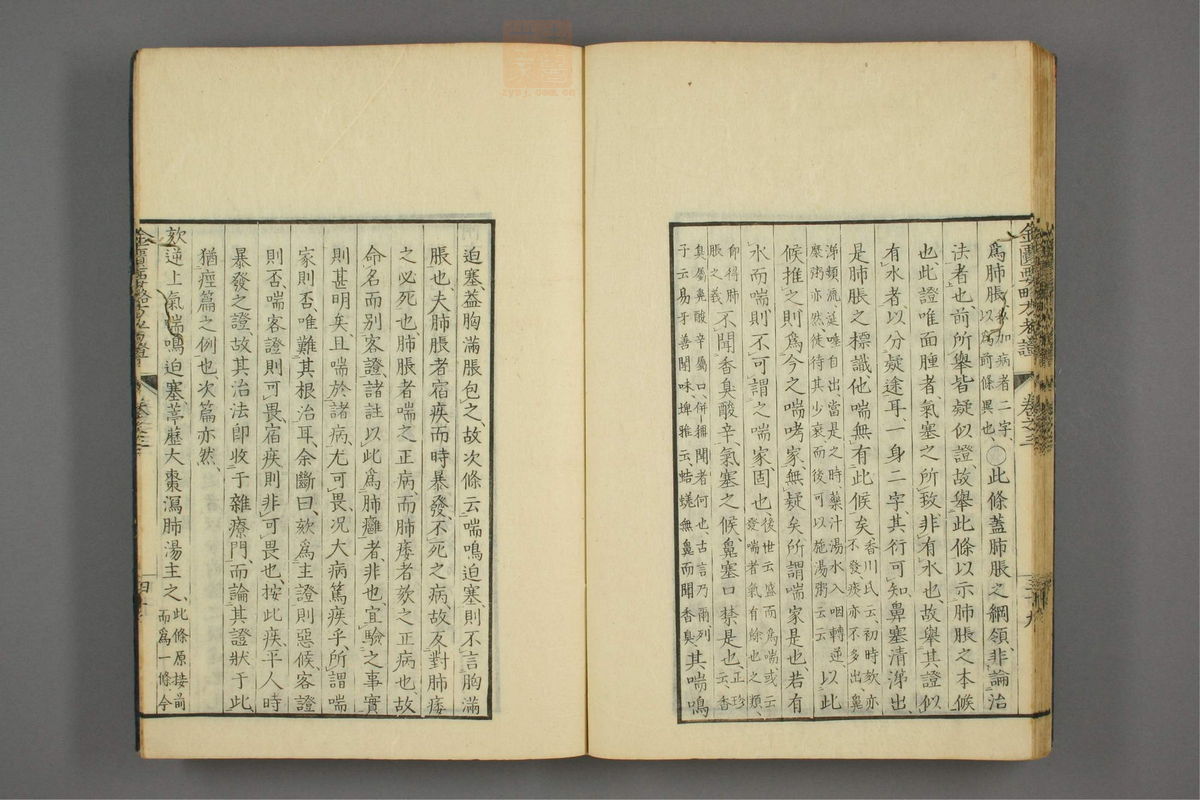 爲肺脹私加病者二字、以爲前條異也、〇此條蓋肺脹之綱領、非論治
法者也、前所舉皆疑似證、故舉此條以示肺脹之本候
也、此證唯面腫者、氣塞之所致、非有水也、故與其證似
有水者、以分疑途耳、一身二字、其衍可知、鼻塞清涕出、
是肺脹之標識、他喘無有此候矣、香川氏云、初時欬亦不發、痰亦不多出、鼻
涕頻流、涎唾自出、當是之時、藥汁湯水入咽轉逆、糜粥亦然、徒待其少衰而後可以施湯粥云云、以此
候推之、則爲今之喘哮家、無疑矣、所謂喘家是也、若有
水而喘、則不可謂之喘家、固也、後世云盛而爲喘、或云發喘者氣有餘也之類、正珍云
仰得肺脹之義、不聞香臭酸辛、氣塞之候、鼻塞口禁是也、香
臭屬鼻、酸辛屬口、併稱聞者何也、古言乃爾、列子云、易牙善聞味、埤雅云、蛣蜣無鼻而聞香臭、其喘鳴
迫塞、蓋胸滿脹包之、故次條云喘鳴迫塞、則不言胸滿
脹也、夫肺脹者宿疾而時暴發、不死之病、故反對肺痿
之必死也、肺脹者喘之正病、而肺痿者欬之正病也、故
命名而別客證、諸註以此爲肺癰者非也、宜驗之事實
則甚明矣、且喘於諸病、尤可畏、況大病篤疾乎、所謂喘
家則否、唯難其根治耳、余斷曰、欬爲主證則惡候、客證
則否、喘客證則可畏、宿疾則非可畏也、按此疾、平人時
暴發之證、故其治法卽收于雜療門、而論其證狀于此
猶痙篇之例也、次篇亦然、
欬逆上氣喘鳴迫塞、葶藶大棗瀉肺湯主之、此條原接前而爲一條、今